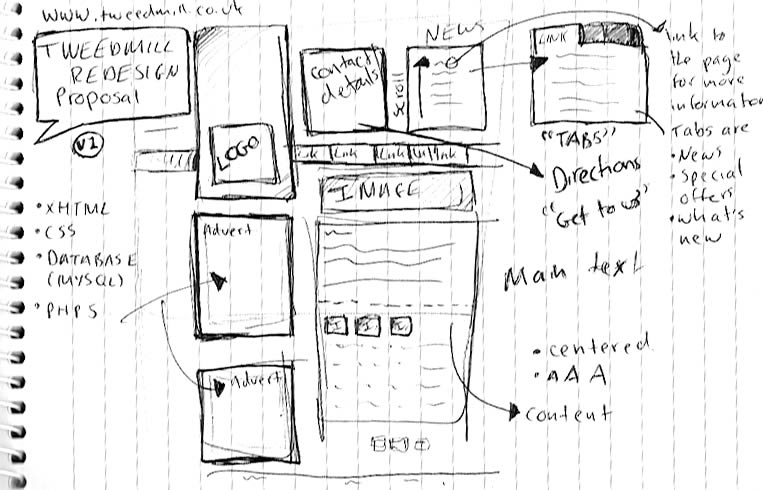 www.tweedmill.co.uk
TWEEDMILL
REDESIGN
Proposal
V1
• XHTML
• CSS
• DATABASE
(MYSQL)
• PHP5
LOGO
contact
details
NEWS
scroll
LINK
"TABS"
link to
the page
for more
information
Tabs are
• News
• Special
offers
• what's
new
link
link
link
link
Directions
"Get to us"
IMAGE
Advert
Advert
I
I
I
Main text
• centered
• AAA
content